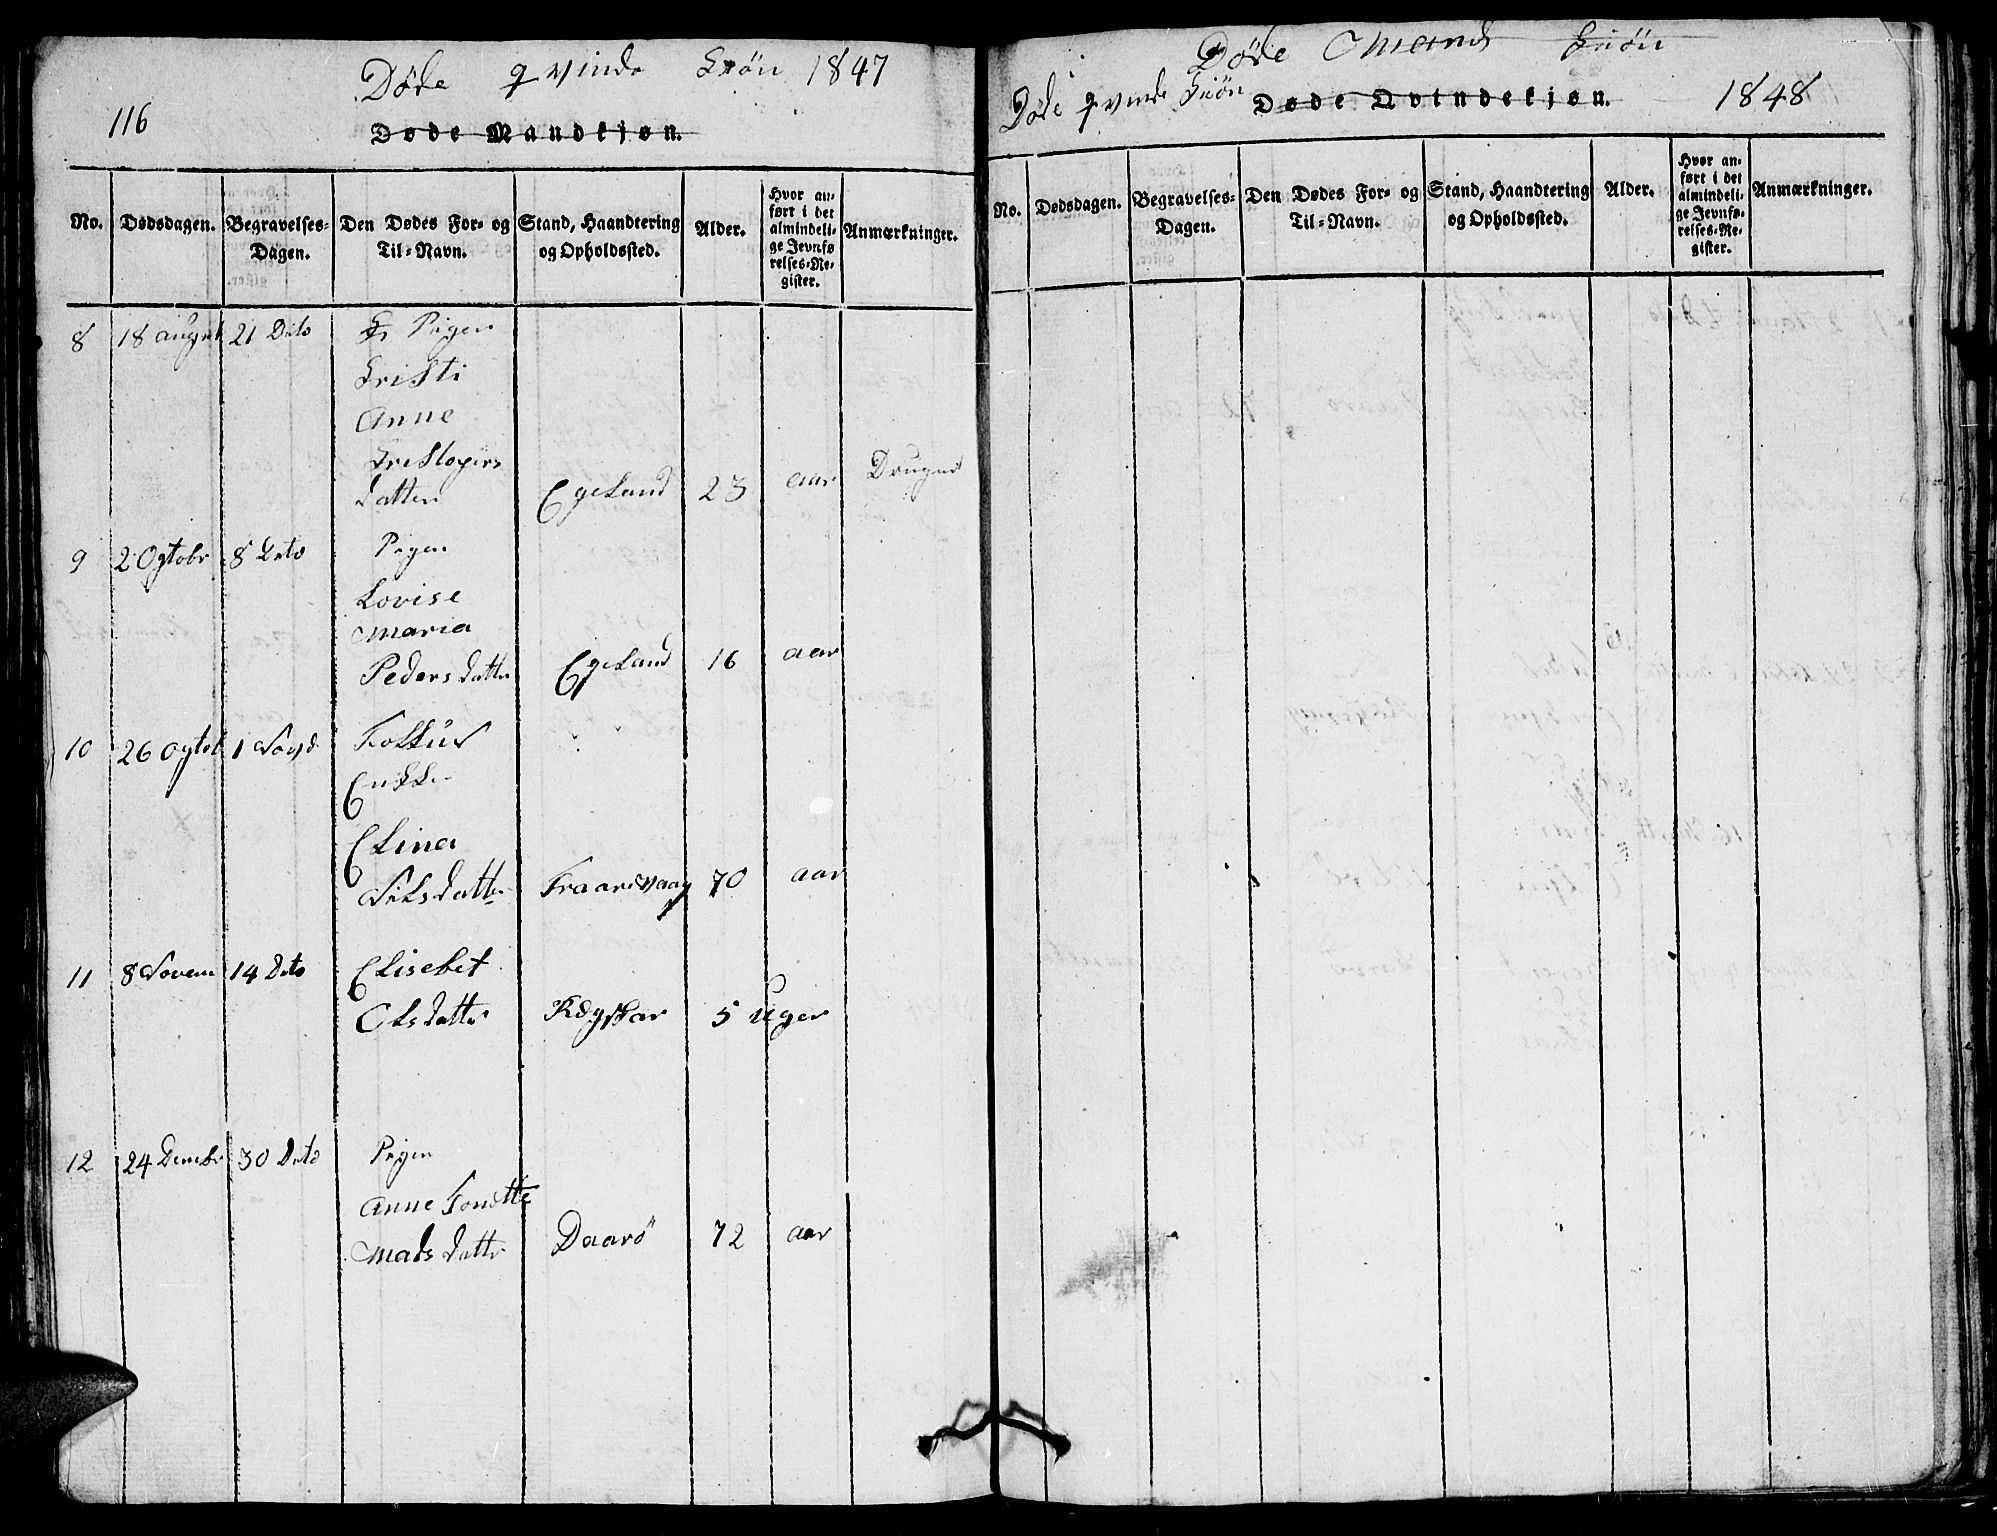 116
Døde qvinde Kiøn 1847
Døde Mandkjøn.
No. Dødsdagen. Begravelses-Dagen. Den Dødes For- og Til-Navn. Stand, Haandtering og Opholdssted. Alder. Hvor anført i det almindelige Jevnførelses-Register. Anmærkninger.
8 18 august 21 Dito Pigen
Kristi
Anne
Kristopers
datter Egeland 23 aar
9 2 Ogtobr 8 Dito Pigen
Lovise
Maria
Pedersdatter Egeland 16 aar
10 26 Ogtob 1
Enkke
Elina
Nilsdatter 70 aar
11 8 Novem 14 Dito Elisebet
Olsdatter 5 Uger
12 24 30 Dito Pigen
Anne
Madsdatter Daarö 72 aar
Døde Mands Kiön
Døde qvinde Kiøn Døde Qvindekjøn. 1848
No. Dødsdagen. Begravelses-Dagen. Den Dødes For- og Til-Navn. Stand, Haandtering og Opholdssted. Alder. Hvor anført i det almindelige Jevnførelses-Register. Anmærkninger.